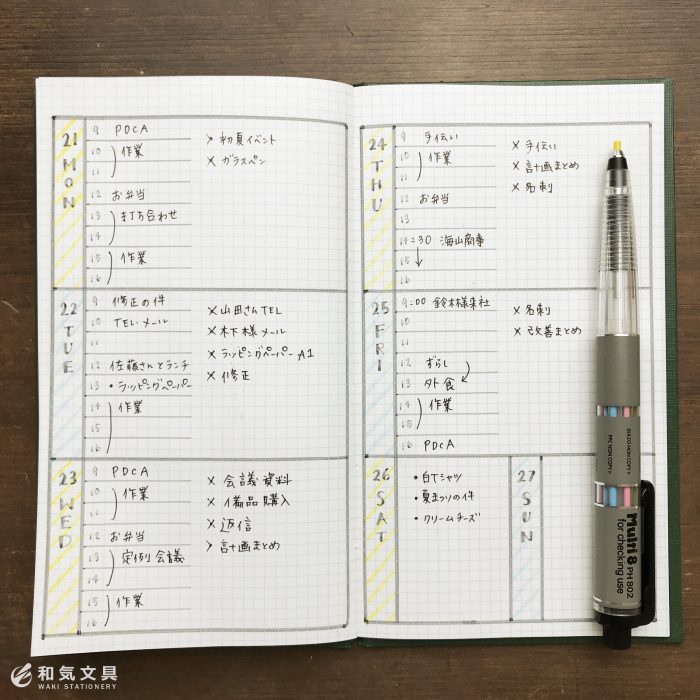 21 MON
9 PDCA
10 作業
11
12 お弁当
13 打ち合わせ
14
15 作業
16
> 初夏イベント
× ガラスペン
22 TUE
9 修正の件
10 TEL.メール
11
12 佐藤さんとランチ
13 ・ラッピングペーパー
14 作業
15
16
× 山田さんTEL
× 木下様メール
× ラッピングペーパーA1
× 修正
23 WED
9 PDCA
10 作業
11
12 お弁当
13 定例会議
14
15 作業
16
× 会議資料
× 備品購入
× 返信
> 計画まとめ
24 THU
9 手伝い
10 作業
11
12 お弁当
13
14:30 海山商事
15
16
× 手伝い
× 計画まとめ
× 名刺
25 FRI
9:00 鈴木様来社
10
11
12 ずらし
13 外食
14 作業
15
16 PDCA
× 名刺
× 改善まとめ
26 SAT
・白Tシャツ
・夏まつりの件
・クリームチーズ
27 SUN
DIAZO NON COPY
PPC NON COPY
Multi 8 PH 802
for checking use
和気文具
WAKI STATIONERY